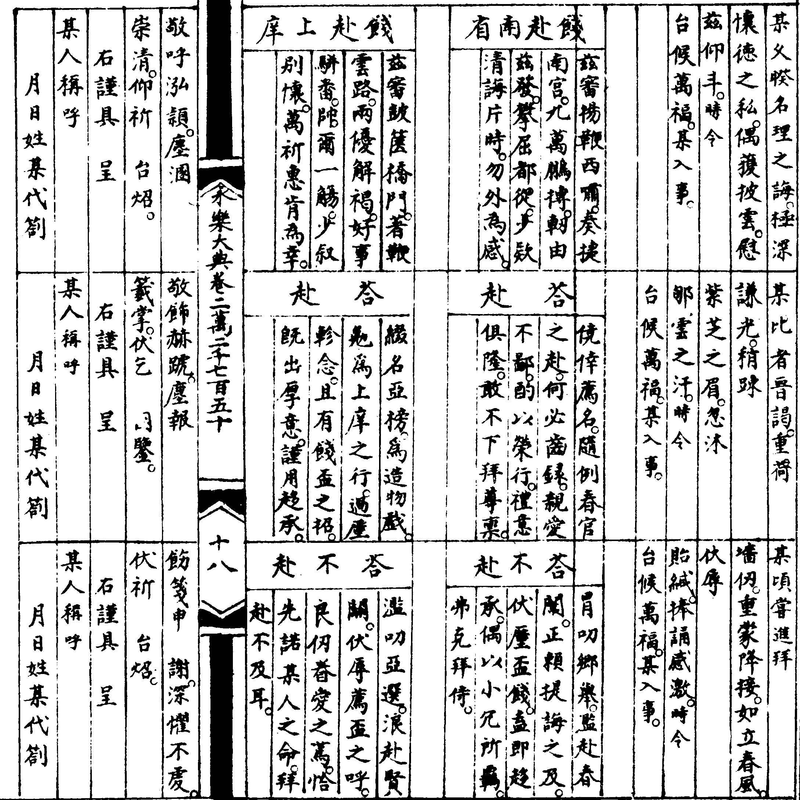 某父暌名理之誨極深
懷德之私偶獲披雲慰
茲仰斗時令
台候萬福某入事
某比者晉謁重荷
謙光稍踈
紫芝之眉忽沐
鄒雲之汗時令
台候萬福某入事
某頃嘗進拜
墻仞重蒙降接如立春風
伏辱
貽緘捧誦感激時令
台候萬福某入事
餞赴南省
茲審揚鞭西嘯奏捷
南宮九萬鵬摶軔由
茲發攀屈都從少欵
清誨片時勿外為感
荅赴
僥倖薦名隨例春官
之赴何必齒錄親愛
不鄙酌以榮行禮意
俱隆敢不下拜尊稟
荅不赴
冒叨鄉舉濫赴春
闈正賴提誨之及
伏蒙盃餞益即趍
承偶以小冗所羈
弗克拜侍
餞赴上庠
茲審鼓篋橋門著鞭
雲路兩優解褐好事
駢番郎爾一觴少叙
別懷萬祈惠肯為幸
荅赴
綴名亞榜為造物戲
勉為上庠之行過塵
軫念且有餞盃之招
既出厚意謹用趍承
荅不赴
濫叨亞選浪赴賢
關伏辱薦盃之呼
良仞眷愛之篤恰
先諾某人之命拜
赴不及耳
永樂大典卷二萬二千七百五十
十八
敬呼泓頴塵溷
崇清仰祈 台炤
右謹具 呈
某人稱呼
月日姓某代劄
敬飾赫蹏塵報
籤掌伏乞 冎鑒
右謹具 呈
某人稱呼
月日姓某代劄
飭箋申 謝深懼不虔
伏祈 台炤
右謹具 呈
某人稱呼
月日姓某代劄